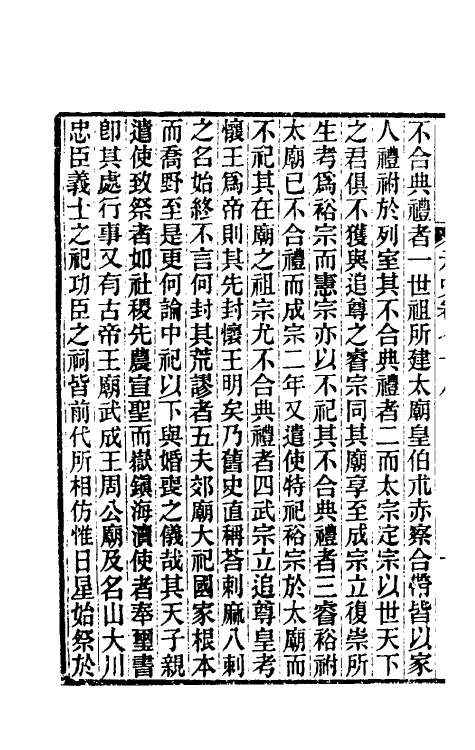 不合典禮者一世祖所建太廟皇伯朮赤察合帶皆以家
人禮祔於列室其不合典禮者二而太宗定宗以世天下
之君俱不獲與追尊之睿宗同其廟享至成宗立復崇所
生考爲裕宗而憲宗亦以不祀其不合典禮者三睿裕祔
太廟已不合禮而成宗二年又遣使特祀裕宗於太廟而
不祀其在廟之祖宗尤不合典禮者四武宗立追尊皇考
懷王爲帝則其先封懷王明矣乃舊史直稱荅剌麻八剌
之名始終不言何封其荒謬者五夫郊廟大祀國家根本
而喬野至是更何論中祀以下與婚喪之儀哉其天子親
遣使致祭者如社稷先農宣聖而嶽鎮海瀆使者奉璽書
卽其處行事又有古帝王廟武成王周公廟及名山大川
忠臣義士之祀功臣之祠皆前代所相仿惟日星始祭於